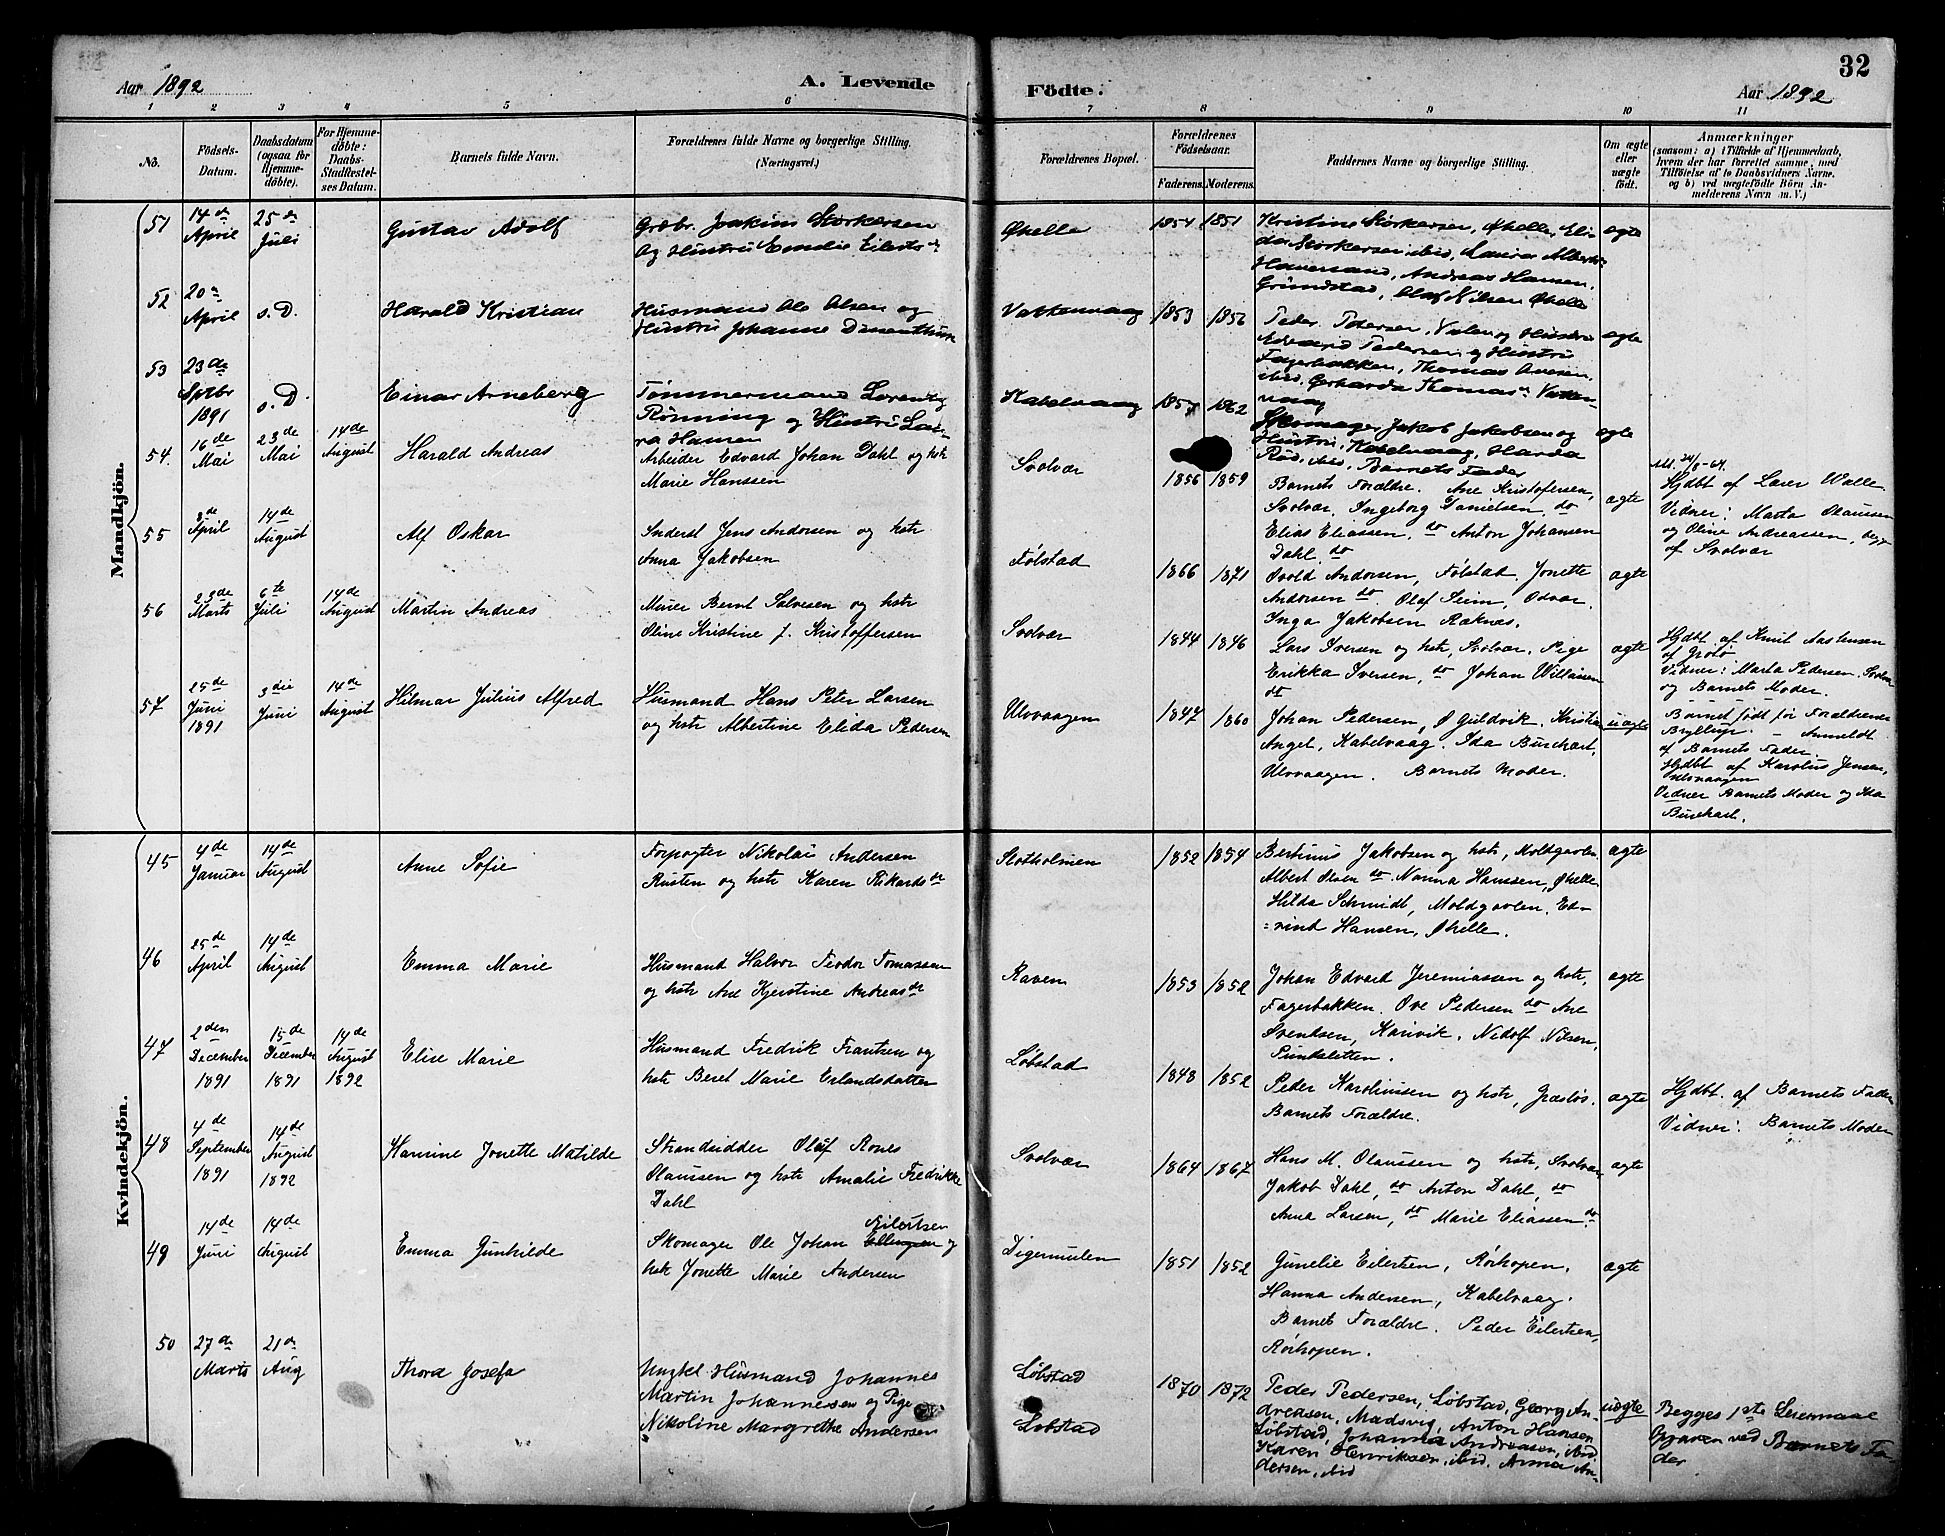 32
Aar 1892
A. Levende
Födte.
Aar 1892
1 2 3 4 5 6 7 8 9 10 11
No.
Födsels-
Datum.
Daabsdatum
(ogsaa for
Hjemme-
döbte).
For Hjemme-
döbte:
Daabs-
Stadfæstel-
ses Datum.
Barnets fulde Navn.
Forældrenes fulde Navne og borgerlige Stilling.
(Næringsvei.)
Forældrenes Bopæl.
Forældrenes
Födselsaar.
Faderens. Moderens.
Faddernes Navne og borgerlige Stilling.
Om ægte
eller
uægte
födt.
Anmærkninger
(saasom: a) i Tilfælde af Hjemmedaab,
hvem der har forrettet samme, med
Tilföielse af to Daabsvidners Navne.
og b) ved uægtefödte Börn An-
melderens Navn m. V.)
Mandkjön.
51
14de
April
25de
Juli
Gustav Adolf
Grdbr. Joakim Storkersen
og Hustru Emilie Eilerts
Øhelle
1854 1851
Kristine Storkersen, Øhelle, Eli-
da Storkersen ibid, Laura Alberts
Haversand, Andreas Hansen,
Grundstad, Olaf Nilsen Øhelle
ægte
52
20de
April
s. D.
Harald Kristian
Husmand Ole Olsen og
Hustru Johanne
1853 1856
Peder Pedersen, og Hustru
Edvard Pedersen og Hustru
Fagerbakken, Thomas
ibid, Gerharda Thomas
ægte
53
23de
Sptbr
1891
s. D
Einar Arneberg
Tømmermand Lorentz
Rönning og Hustru Lau-
ra Hansen
Kabelvaag
1857 1862
Skomager Jakob Jakobsen og
Hustru, Kabelvaag, Harda
Röd, ibid, Barnets Fader
ægte
54.
16de
Mai
23de
Mai
14de
August
Harald Andreas
Arbeider Edvard Johan Dahl og hstr
Marie Hanssen
Svolvær
1856 1859
Barnets Forældre. Ane Kristofersen,
Svolvær, Ingeborg Danielsen, do
Elias Eliassen, do Anton Johansen
Dahl do
ægte
Hjdbt af Lærer Walle
Vidner: Marta Olaussen
og Oline Andreassen, begge
af Svolvær
55
3de
April
14de
August
Alf Oskar
Inderst Jens Andorsen og hstr
Anna Jakobsen
Følstad
1866 1871
Andorsen, Følstad. Jonette
Andorsen do. Olaf Seim,
Inga Jakobsen Ræknes.
ægte
56
23de
Marts
6te
Juli
14de
August
Martin Andreas
Murer Bernt Salvesen og hstr
Oline Kristine f. Kristoffersen
Svolvær
1844 1846
Lars Iversen og hstr, Svolvær. Pige
Erikka Iversen, do Johan Williamsen
do
ægte
Hjdbt af Knut Aastensen
af Grötö
Vidner: Marta Pedersen. Svolvær
og Barnets Moder.
57
25de
Juni
1891
3die
Juni
14de
August
Hilmar Julius Alfred
Husmand Hans Peter Larsen
og hstr Albertine Elida Pedersen
Ulvaagen
1847 1860
Johan Pedersen, Ø Guldvik. Kristian
Angel, Kabelvaag. Ida Burchart,
Ulvaagen. Barnets Moder.
uægte
Barnet født før Forældrenes
Bryllup. - Anmeldt
af Barnets Fader.
Hjdbt af Karolius Jensen,
Ulvaagen
Vidner Barnets Moder og Ida
Burchart.
Kvindekjön.
45
4de
Januar
14de
August
Anne Sofie
Forpagter Nikolai Andersen
Rusten og hstr Karen Rikardsdr
Slotholmen
1852 1854
Bertinus Jakobsen og hstr, Moldgavlen
Albert Olsen do. Nanna Hanssen, Øhelle
Hilda Schmidt, Moldgavlen. Ed-
vind Hansen, Øhelle.
ægte
46
25de
April
14de
August
Emma Marie
Husmand Halvor Teodor Tomassen
og hstr Ane Kjerstine Andreasdr
Raven
1853 1852
Johan Edvard Jeremiassen og hstr,
Fagerbakken. Ove Pedersen do Ane
Svendsen, Kanvik. Nidolf Nilsen,
Sundsletten.
ægte
47
2den
December
1891
15de
December
1891
14de
August
1892
Elise Marie
Husmand Fredrik Frantsen og
hstr Beret Marie Erlandsdatter
Løbstad
1848 1852
Peder Karolinsen og hstr, Græsløs.
Barnets Forældre.
ægte
Hjdbt. af Barnets Fader
Vidner: Barnets Moder
48
4de
September
1891
14de
August
1892
Hanine Jonette Matilde
Strandsidder Oluf Rones
Olaussen og hstr Amalie Fredrikke
Dahl
Svolvær
1864 1867
Hans M. Olaussen og hstr, Svolvær
Jakob Dahl, do Anton Dahl, do
Anna Larsen, do Marie Eliassen do
ægte
49
14de
Juni
14de
August
Emma Gunhilde
Eilertsen
Skomager Ole Johan Ellingsen og
hstr Jonette Marie Andersen
Digermulen
1851 1852
Gunelie Eilertsen, Rörhopen.
Hanna Andersen, Kabelvaag.
Barnets Forældre. Peder Eilertsen,
Rörhopen.
ægte
50
27de
Marts
21de
Aug
Thora Josefa
Ungkl. Husmand Johannes
Martin Johannesen og Pige
Nikoline Margrethe Andersen
Løbstad
Løbstad
1870 1872
Peder Pedersen, Løbstad, Georg An-
dreasen, Madsvig, Anton Hansen
Løbstad, Johanna Andreasen, ibid
Karen Henriksen, ibid, Anna An-
dersen, ibid
uægte
Begges 1ste Leiermaal
Opgaven ved Barnets Fa-
der